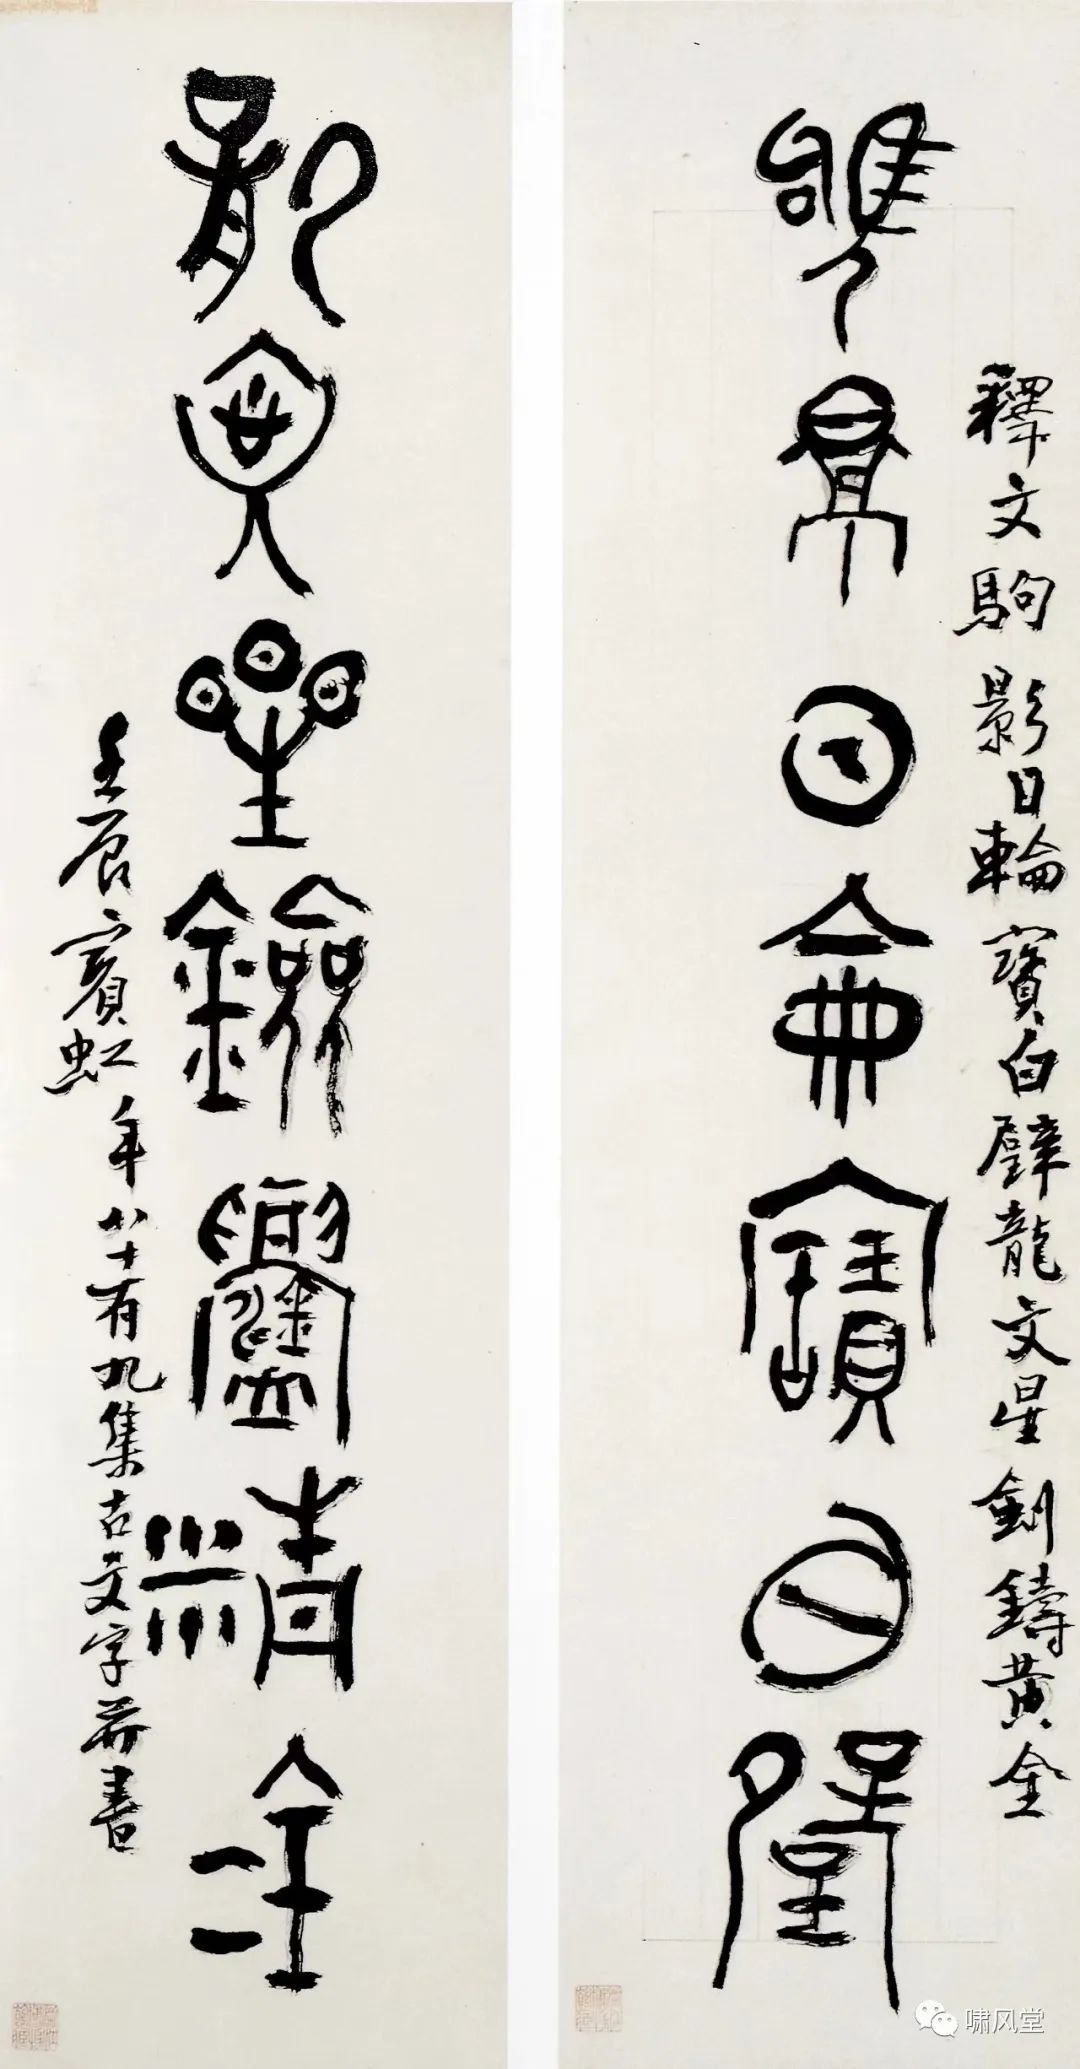 釋文駒影日輪寶白璧龍文星劍鑄黃金
駒影日輪寶白璧
龍文星劍鑄黃金
壬辰賓虹年八十有九集古文字并書
啸风堂